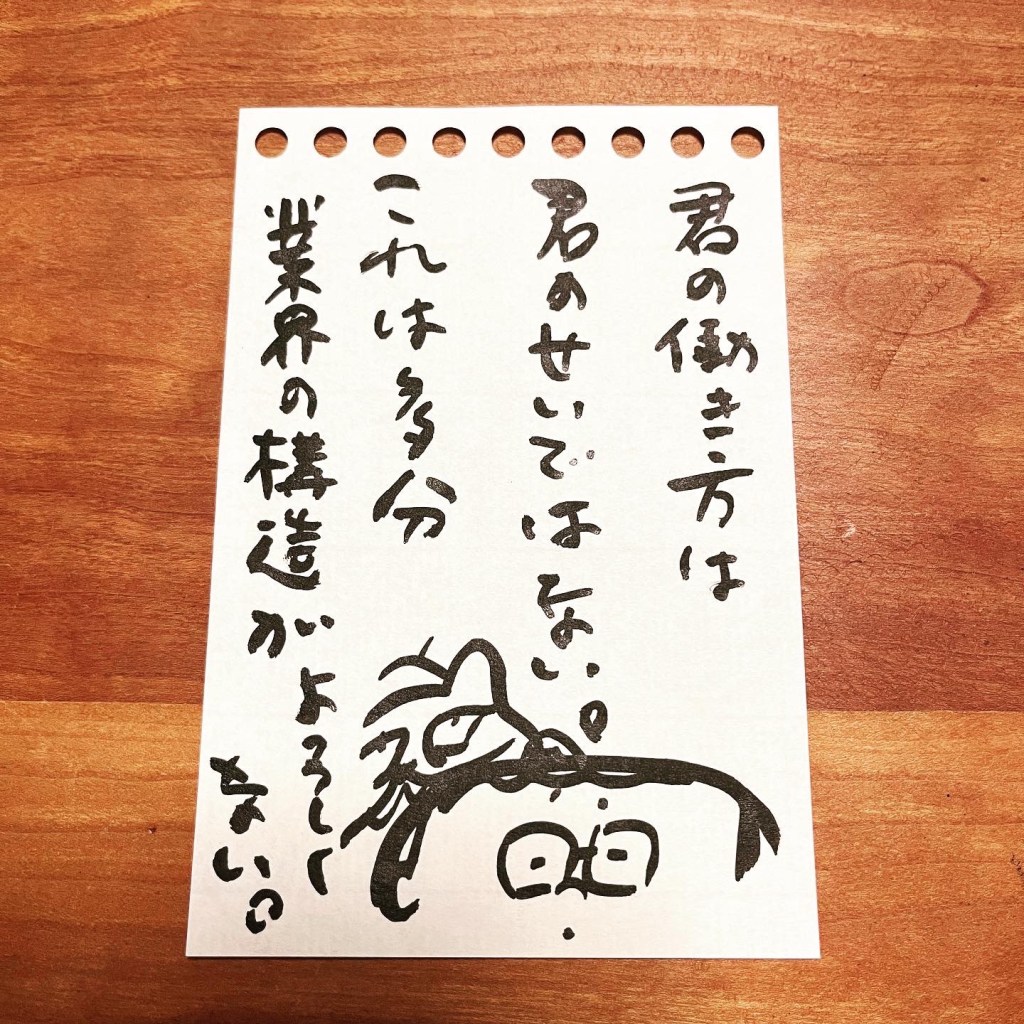 君の働き方は
君のせいではない。
これは多分
業界の構造がよろしく
ない。